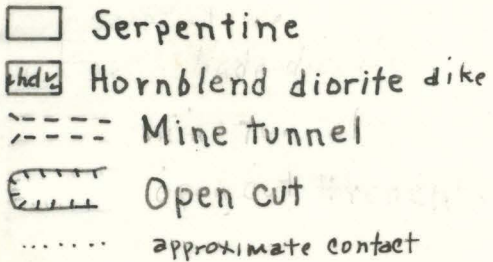 Serpentine
hd Hornblend diorite dike
Mine tunnel
Open cut
approximate contact